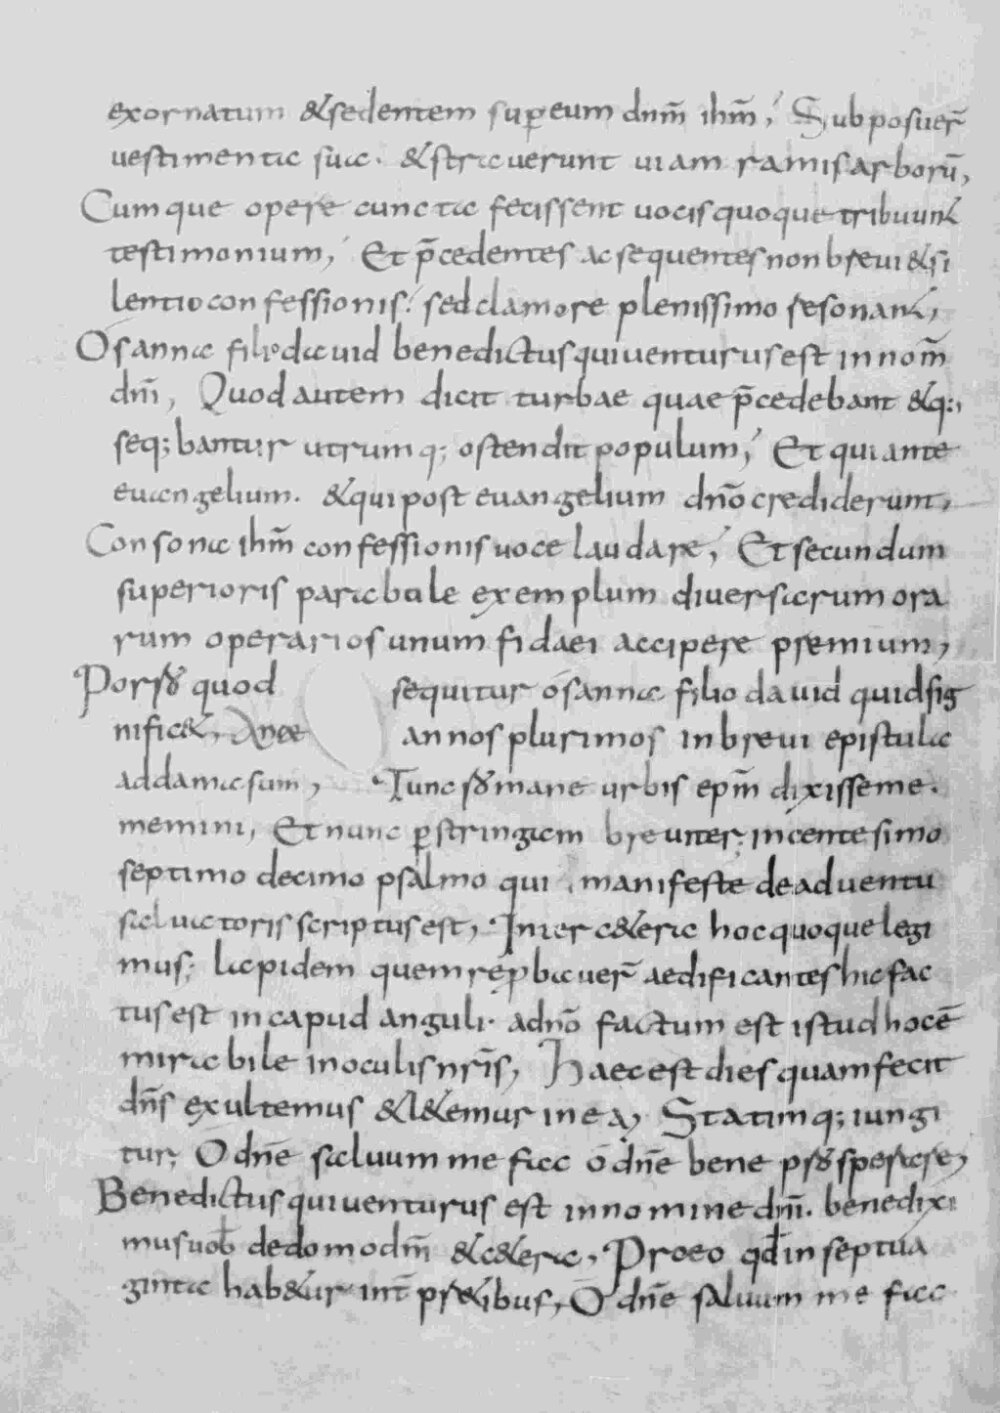 exornatum &sedentem super eum dnm̄ ihm̄; Subposuer̄
uestimenta sua. &strauerunt uiam ramis arborū,
Cumque opere cuncta fecissent uocis quoque tribuunt
testimonium; Et p̄cedentes ac sequentes non breui &si
lentio confessionis; sed clamore plenissimo resonant;
Osanna filio dauid benedictus qui uenturus est in nom̄
dm̄i, Quod autem dicit turbae quae p̄cedebant &q:,
seq; bantur utrumq; ostendit populum; Et qui ante
euangelium. &qui post euangelium dnō crediderunt,
Consona ihm̄ confessionis uoce laudare; Et secundum
superioris parabule exemplum diuersarum ora
rum operarios unum fidaei accipere premium,
Porro quod sequitur osanna filio dauid quid sig
nific&, Ante annos plurimos in breui epistula
addamasum, Tunc romane urbis epm̄ dixisse me.
memini, Et nunc perstringam breuiter, in centesimo
septimo decimo psalmo qui manifeste de aduentu
saluatoris scriptus est, Inter c&era hoc quoque legi
mus; lapidem quem reprobauer̄ aedificantes hic fac
tus est in capud anguli. a dnō factum est istud hoc ē
mirabile in oculis nr̄is, Haec est dies quam fecit
dn̄s exultemus &l&emur in ea, Statimq; iungi
tur, O dn̄e saluum me fac o dn̄e bene prosperare,
Benedictus qui uenturus est in nomine dm̄i. benedixi
mus uob̄ de domo dm̄i &c&era, Pro eo qd̄ in septua
ginta hab&ur int̄pr&ibus, O dn̄e saluum me fac